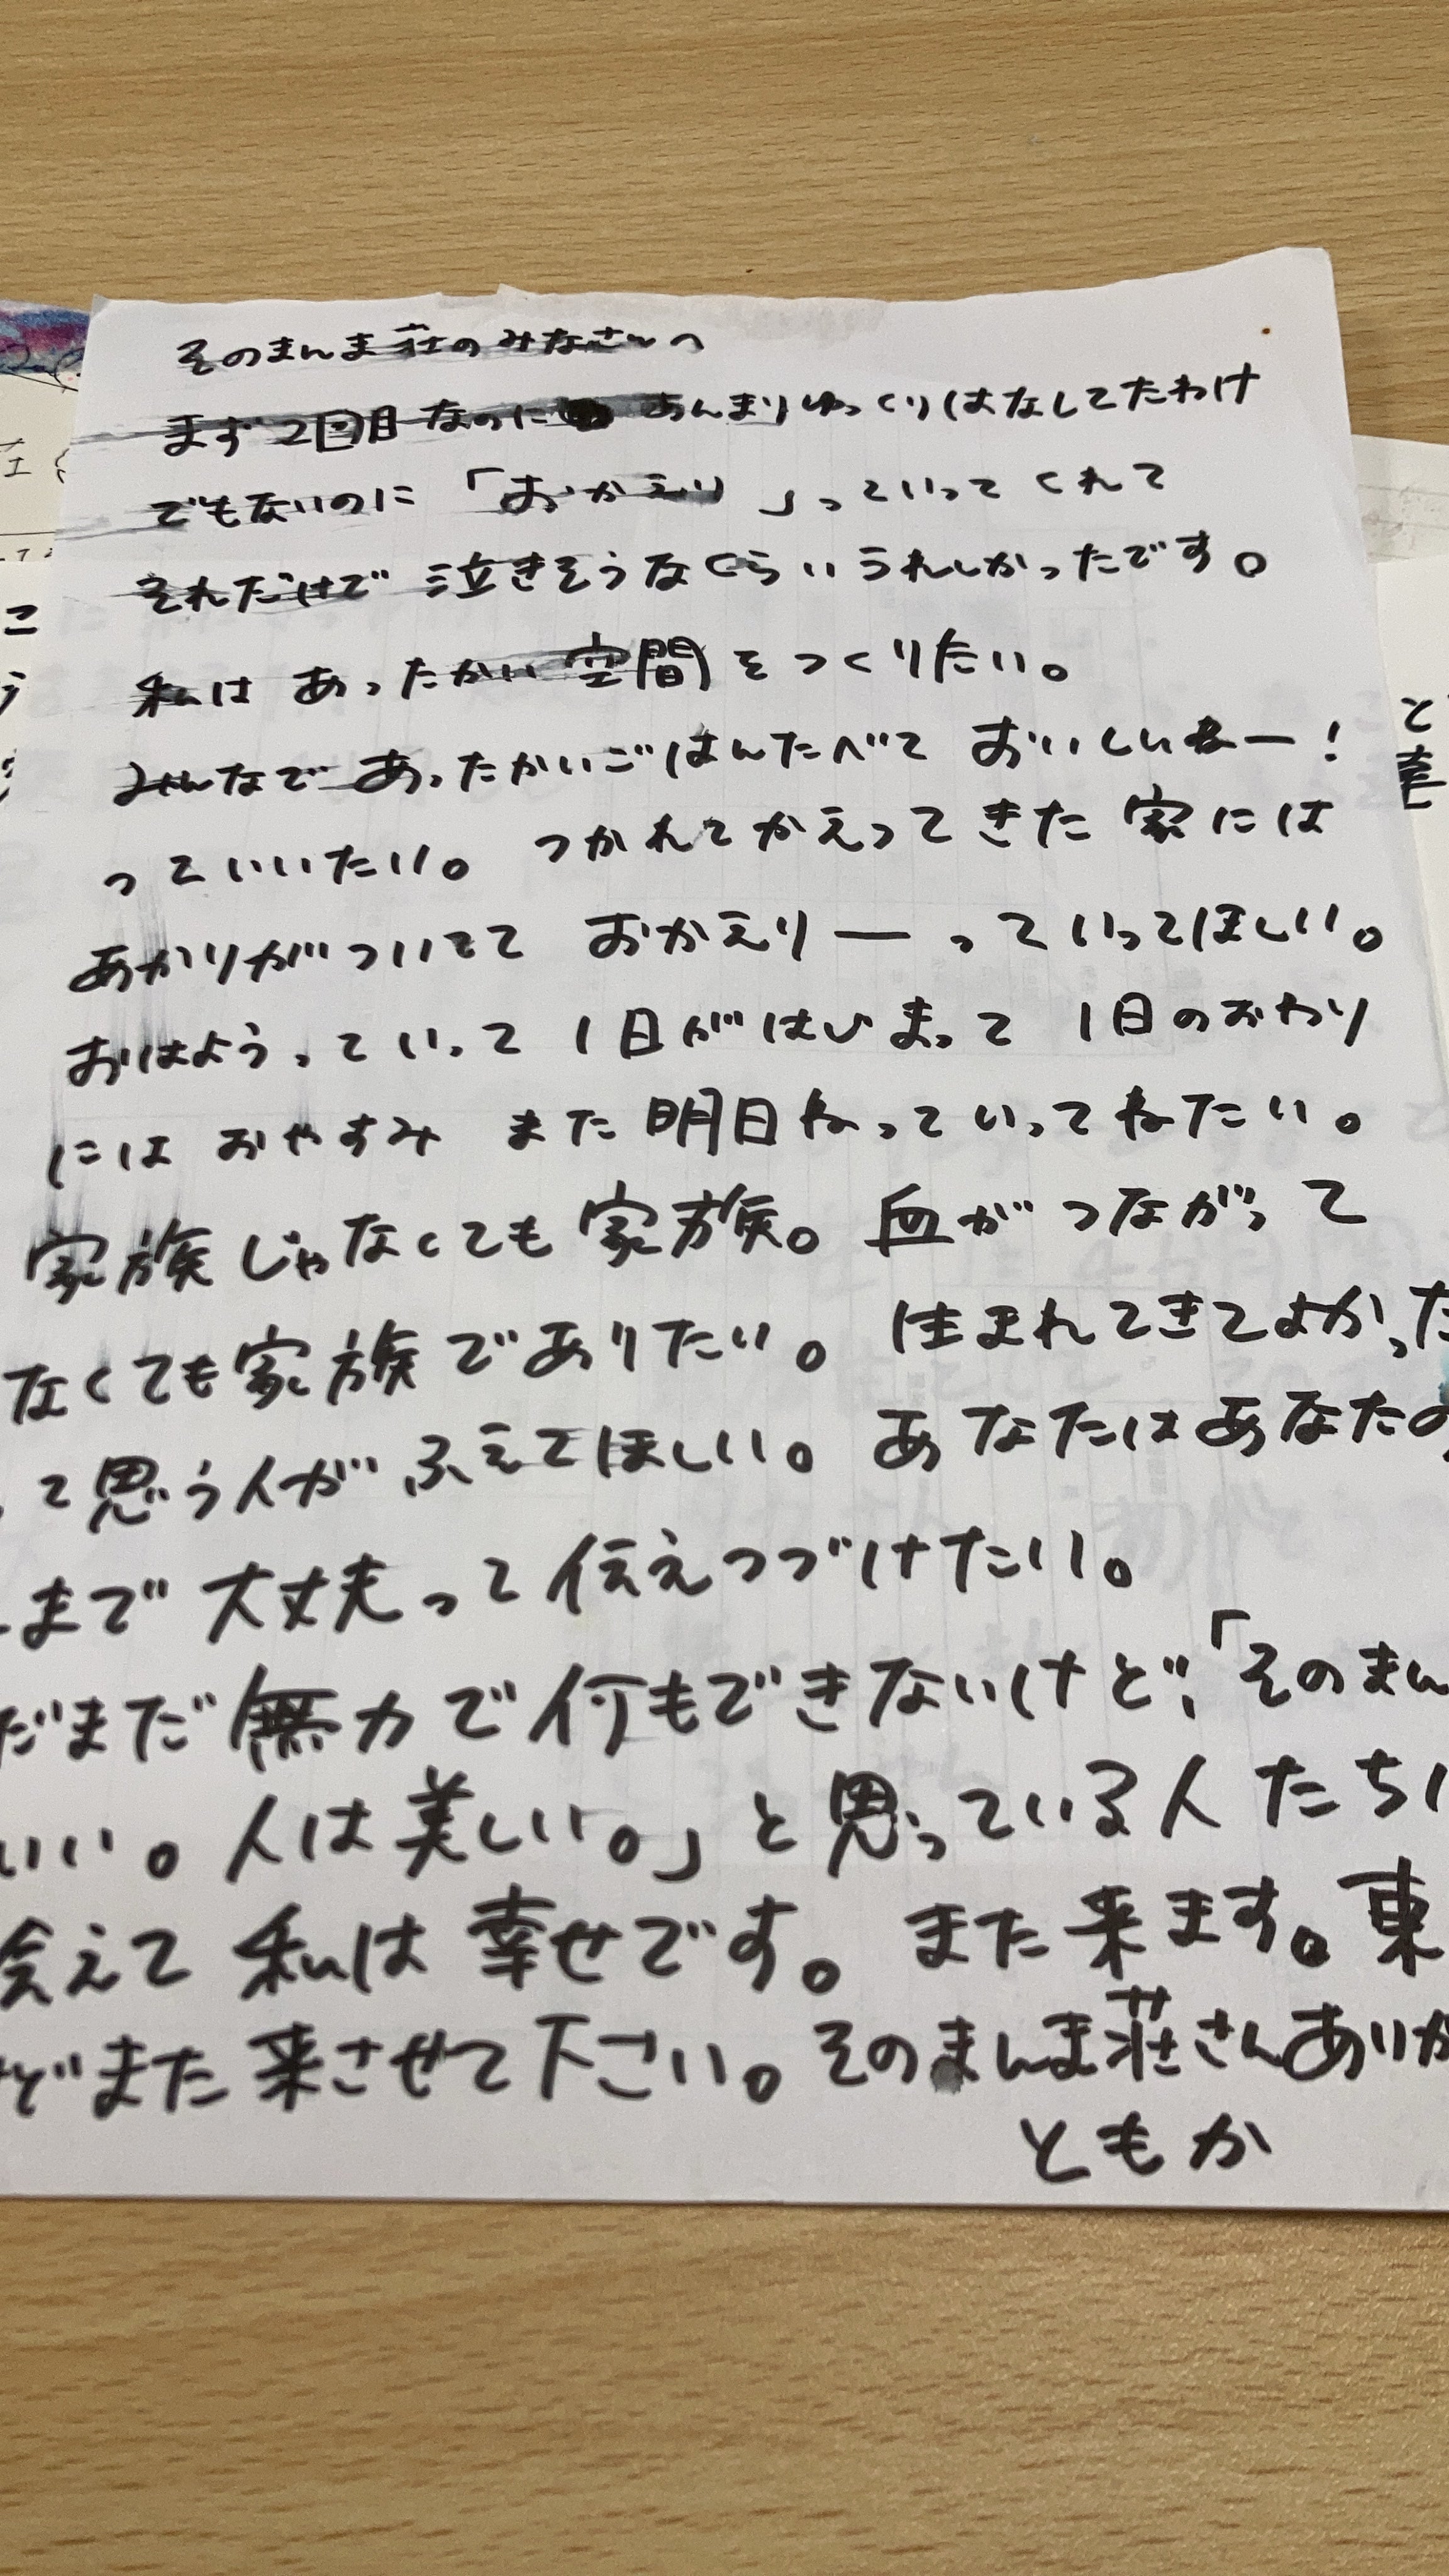 そのまんま荘のみなさんへ
まず2回目なのに あんまりゆっくりはなしてたわけ
でもないのに「おかえり」っていってくれて
それだけで 泣きそうなくらいうれしかったです。
私は あったかい空間をつくりたい。
みんなであったかいごはんたべて おいしいねー!
っていいたい。つかれてかえってきた家には
あかりがついてて おかえりーっていってほしい。
おはようっていって 1日がはじまって 1日のおわり
には おやすみ また明日ねっていってねたい。
家族じゃなくても家族。血がつながって
なくても家族でありたい。生まれてきてよかった
って思う人がふえてほしい。あなたはあなたの
まで大丈夫って伝えつづけたい。
だまだ無力で何もできないけど、「そのまん
いい。人は美しい。」と思っている人たち
会えて私は幸せです。また来ます。東
どまた来させて下さい。そのまんま荘さんありが
ともか